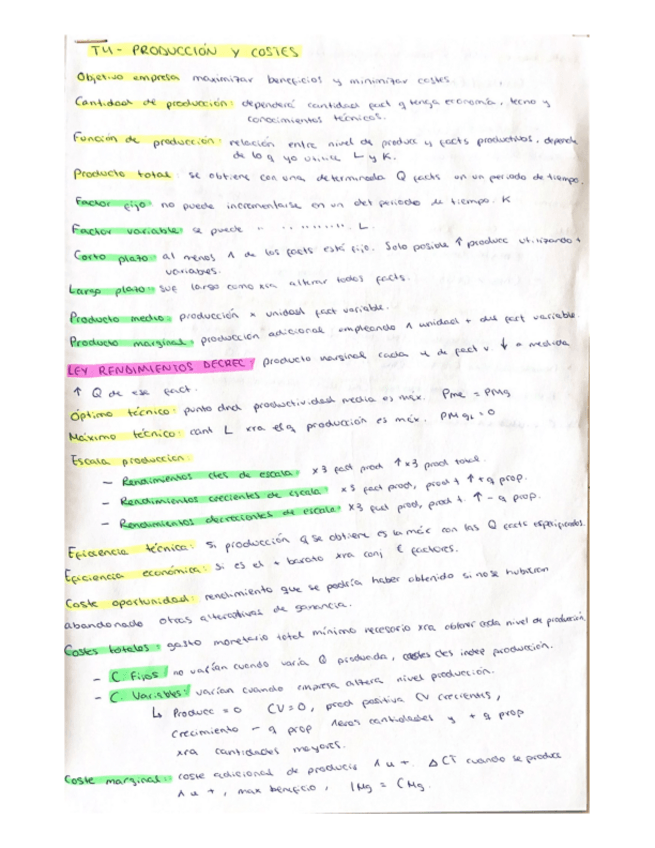 T4 - PRODUCCIÓN Y COSTES
Objetivo empresa maximizar beneficios y minimizar costes.
Cantidad de producción: dependerá cantidad fact q tenga economía, tecno y
conocimientos técnicos.
Función de producción: relación entre nivel de producc y facts productivos, depende
de lo q yo utilice L y K.
Producto total: se obtiene con una determinada Q facts en un periodo de tiempo.
Factor fijo: no puede incrementarse en un det periodo de tiempo. K
Factor variable: se puede " .. .. .. .. .. .. . L.
Corto plazo: al menos 1 de los facts está fijo. Solo posible ↑ producc utilizando +
variables.
Largo plazo: sue largo como xra alterar todos facts.
Producto medio: producción x unidad fact variable.
Producto marginal: producción adicional empleando 1 unidad + del fact variable.
LEY RENDIMIENTOS DECREC/ producto marginal cada u de fact v. ↓ a medida
↑ Q de ese fact.
Óptimo técnico: punto dnd productividad media es máx. Pme = PMg
Máximo técnico: cant L xra el q producción es máx. PMgL = 0
Escala producción:
- Rendimientos ctes de escala: x3 fact prod ↑x3 prod total.
- Rendimientos crecientes de escala: x3 fact prod, prod t ↑ + q prop.
- Rendimientos decrecientes de escala: x3 fact prod, prod t. ↑ - q prop.
Eficiencia técnica: Si producción q se obtiene es la máx con las Q facts especificados.
Eficiencia económica: Si es el + barato xra conj € factores.
Coste oportunidad: rendimiento que se podría haber obtenido si no se hubieran
abandonado otras alternativas de ganancia.
Costes totales: gasto monetario total mínimo necesario xra obtener cada nivel de producción.
- C. Fijos/ no varían cuando varía Q producida, costes ctes indep producción.
- C. Variables/ varían cuando empresa altera nivel producción.
↳ Producc = 0 CV=0, prod positiva CV crecientes,
crecimiento - q prop cantidades y + q prop
xra cantidades mayores.
Coste marginal: coste adicional de producir 1 u +. ΔCT cuando se produce
1 u +, max beneficio, IMg = CMg.